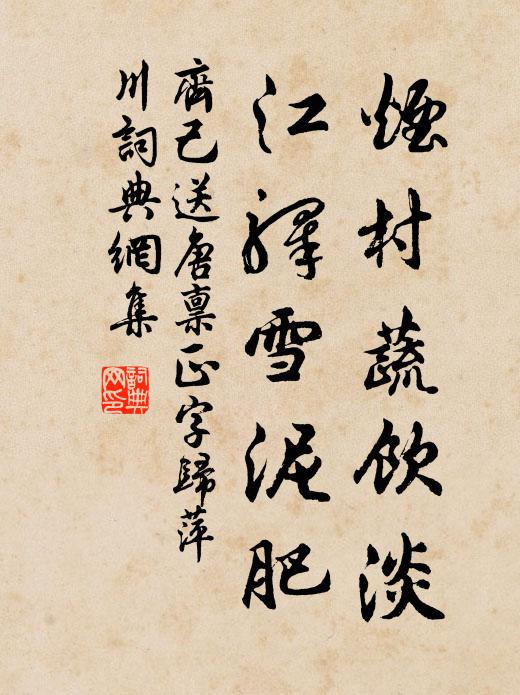 煙村蔬飲淡
江驛雪泥肥
齊己送唐稟正字歸萍
川詞典網集
詞典
网印